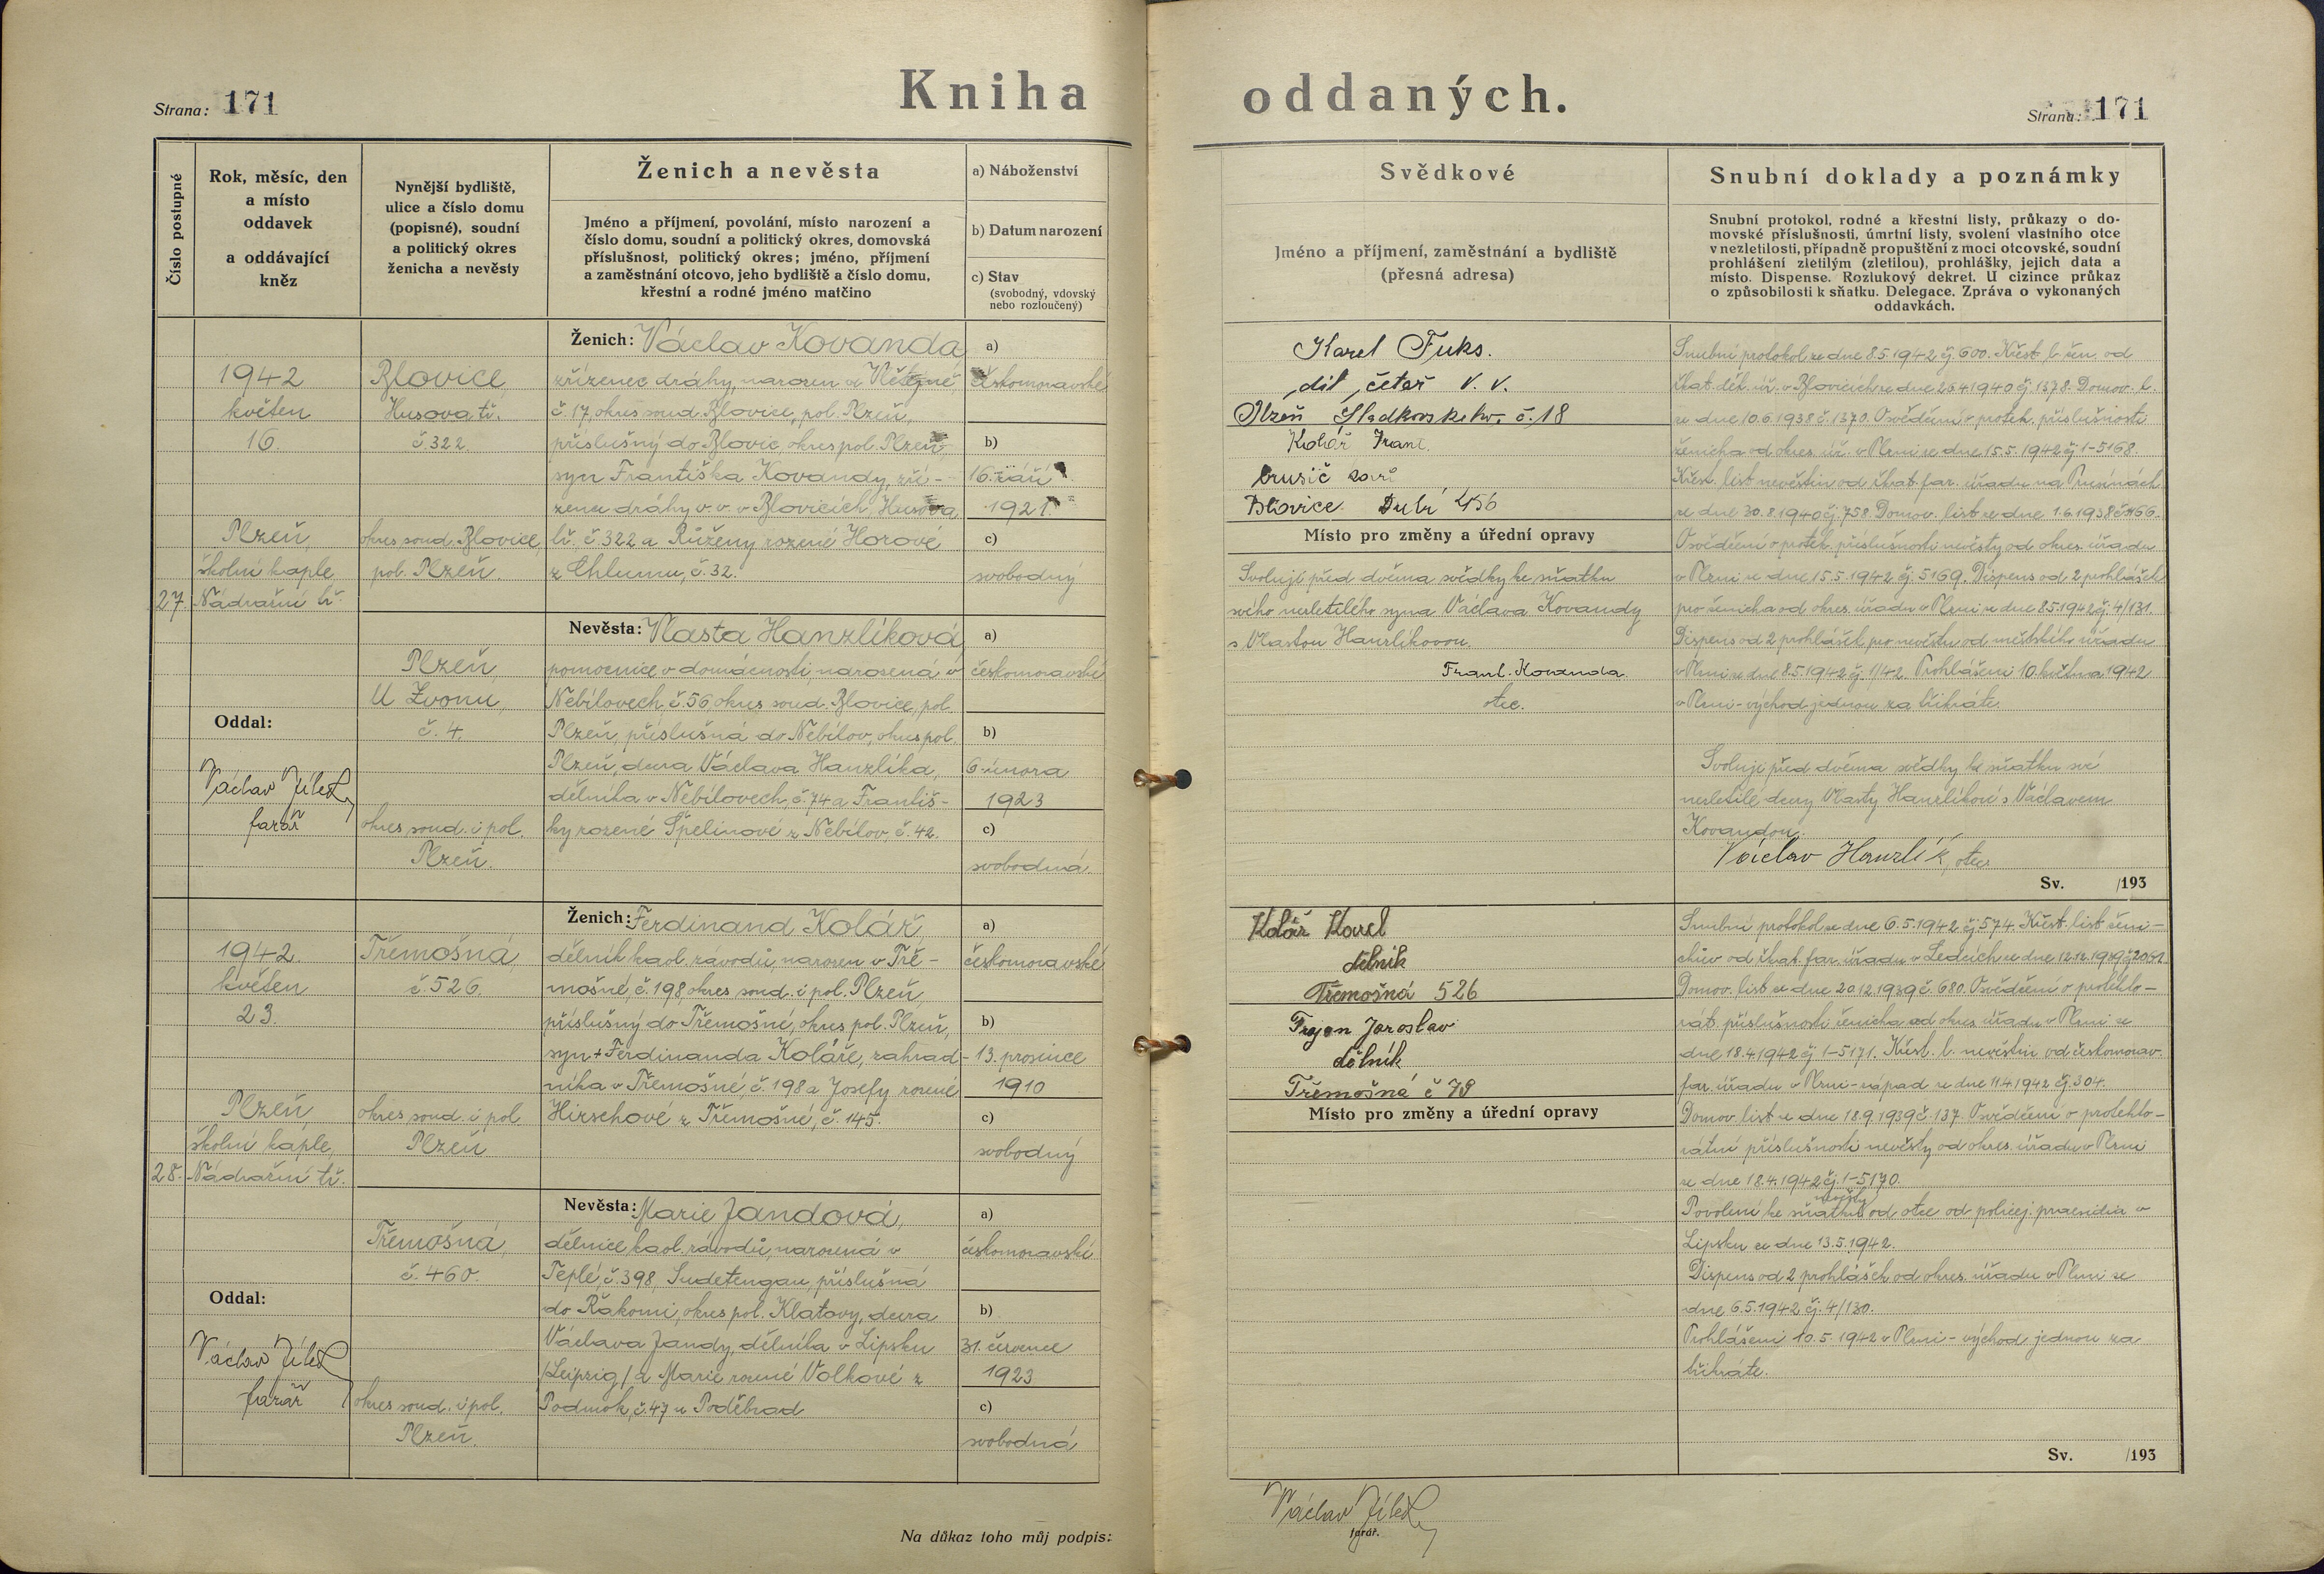 Strana: 171
Kniha oddaných.
Strana: 171
Číslo postupné
Rok, měsíc, den
a místo
oddavek
a oddávající
kněz
Nynější bydliště,
ulice a číslo domu
(popisné), soudní
a politický okres
ženicha a nevěsty
Ženich a nevěsta
Jméno a příjmení, povolání, místo narození a
číslo domu, soudní a politický okres, domovská
příslušnost, politický okres; jméno, příjmení
a zaměstnání otcovo, jeho bydliště a číslo domu,
křestní a rodné jméno matčino
a) Náboženství
b) Datum narození
c) Stav
(svobodný, vdovský
nebo rozloučený)
Svědkové
Jméno a příjmení, zaměstnání a bydliště
(přesná adresa)
Snubní doklady a poznámky
Snubní protokol, rodné a křestní listy, průkazy o do-
movské příslušnosti, úmrtní listy, svolení vlastního otce
v nezletilosti, případně propuštění z moci otcovské, soudní
prohlášení zletilým (zletilou), prohlášky, jejich data a
místo. Dispense. Rozlukový dekret. U cizince průkaz
o způsobilosti k sňatku. Delegace. Zpráva o vykonaných
oddavkách.
27.
1942
květen
16.
Plzeň,
školní kaple
Nádražní tř.
Oddal:
Václav Jílek
farář
Blovice,
Husova tř.
č. 322.
okres soud. Blovice,
pol. Plzeň.
Ženich: Václav Kovanda,
zřízenec dráhy, narozen ve
č. 17, okres soud. Blovice, pol. Plzeň,
příslušný do Blovic, okres pol. Plzeň,
syn Františka Kovandy, zří-
zence dráhy v. v. v Blovicích, Husova
tř. č. 322 a Růženy rozené Horové
z Chlumu, č. 32.
a)
českomoravské
b)
16. září
1921
c)
svobodný
Plzeň,
U Zvonu,
č. 4.
okres soud. i pol.
Plzeň.
Nevěsta: Vlasta Hanzlíková,
pomocnice v domácnosti narozená v
Nebílovech, č. 56 okres soud. Blovice, pol.
Plzeň, příslušná do Nebílov, okres pol.
Plzeň, dcera Václava Hanzlíka,
dělníka v Nebílovech, č. 74 a Františ-
ky rozené Špelinové z Nebílov, č. 42.
a)
českomoravské
b)
6. února
1923
c)
svobodná.
Karel Fuks.
díl. četař v. v.
Plzeň Sladkovského č. 18
Kolář Frant.
Blovice Dubí 456
Místo pro změny a úřední opravy
Svoluji před dvěma svědky ke sňatku
svého nezletilého syna Václava Kovandy
s Vlastou Hanzlíkovou.
Frant. Kovanda.
otec.
Snubní protokol ze dne 8.5.1942 čj. 600. Křest. l. žen. od
škat. děk. úř. v Blovicích ze dne 25.4.1940 čj. 1378. Domov. l.
ze dne 10.6.1938 č. 1370. Osvědčení o protek. příslušnosti
ženicha od okres. úř. v Plzni ze dne 15.5.1942 čj. 1-5168.
Křest. list nevěstin od škat. far. úřadu na Prusinách
ze dne 30.8.1940 čj. 758. Domov. list ze dne 1.6.1938
Osvědčení o protek. příslušnosti nevěsty od okres. úřadu
v Plzni ze dne 15.5.1942 čj. 5169. Dispens od 2 prohlášek
pro ženicha od okres. úřadu v Plzni ze dne 8.5.1942 čj. 4/131.
Dispens od 2 prohlášek pro nevěstu od městského úřadu
v Plzni ze dne 8.5.1942 čj. 1/42. Prohlášeni 10. května 1942
v Plzni-východ jednou za třikráte.
Svoluji před dvěma svědky ke sňatku své
nezletilé dcery Vlasty Hanzlíkové s Václavem
Kovandou.
Václav Hanzlík, otec
Sv. /193
28.
1942.
květen
23.
Plzeň,
školní kaple,
Nádražní tř.
Oddal:
Václav Jílek
farář
Třemošná,
č. 526.
okres soud. i pol.
Plzeň
Ženich: Ferdinand Kolář,
dělník kaol. závodů, narozen v Tře-
mošné, č. 198, okres soud. i pol. Plzeň,
příslušný do Třemošné, okres pol. Plzeň,
syn + Ferdinanda Koláře, zahrad-
níka v Třemošné, č. 198 a Josefy rozené
Hirschové z Třemošné, č. 145.
a)
českomoravské
b)
13. prosince
1910
c)
svobodný
Třemošná,
č. 460.
okres soud. i pol.
Plzeň.
Nevěsta: Marie Jandová,
dělnice kaol. závodů, narozená v
Teplé, č. 398, Sudetengau, příslušná
do Řakomi, okres pol. Klatovy, dcera
Václava Jandy, dělníka v Lipsku
/Leipzig/ a Marie rozené Volkové z
Podmok, č. 47 u Poděbrad
a)
českomoravské
b)
31. července
1923
c)
svobodná
Kolář Karel
dělník
Třemošná 526
Trojan Jaroslav
dělník
Třemošná č 78
Místo pro změny a úřední opravy
Snubní protokol ze dne 6.5.1942 čj. 574. Křest. list ženi-
chův od škat. far. úřadu v Ledcích ze dne 12.12.1939
Domov. list ze dne 20.12.1939 č. 680. Osvědčení o protekto-
rát. příslušnosti ženicha od okres. úřadu v Plzni ze
dne 18.4.1942 čj. 1-5171. Křest. l. nevěstin od českomorav.
far. úřadu v Plzni-západ ze dne 11.4.1942 čj. 304.
Domov. list ze dne 18.9.1939 č. 137. Osvědčení o protekto-
rátní příslušnosti nevěsty od okres. úřadu v Plzni
ze dne 18.4.1942 čj. 1-5170.
Povolení ke sňatku nevěsty od otce od policej. praesidia v
Lipsku ze dne 13.5.1942.
Dispens od 2 prohlášek od okres. úřadu v Plzni ze
dne 6.5.1942 čj. 4/130.
Prohlášeni 10.5.1942 v Plzni-východ, jednou za
třikráte.
Sv. /193
Na důkaz toho můj podpis:
Václav Jílek
farář.